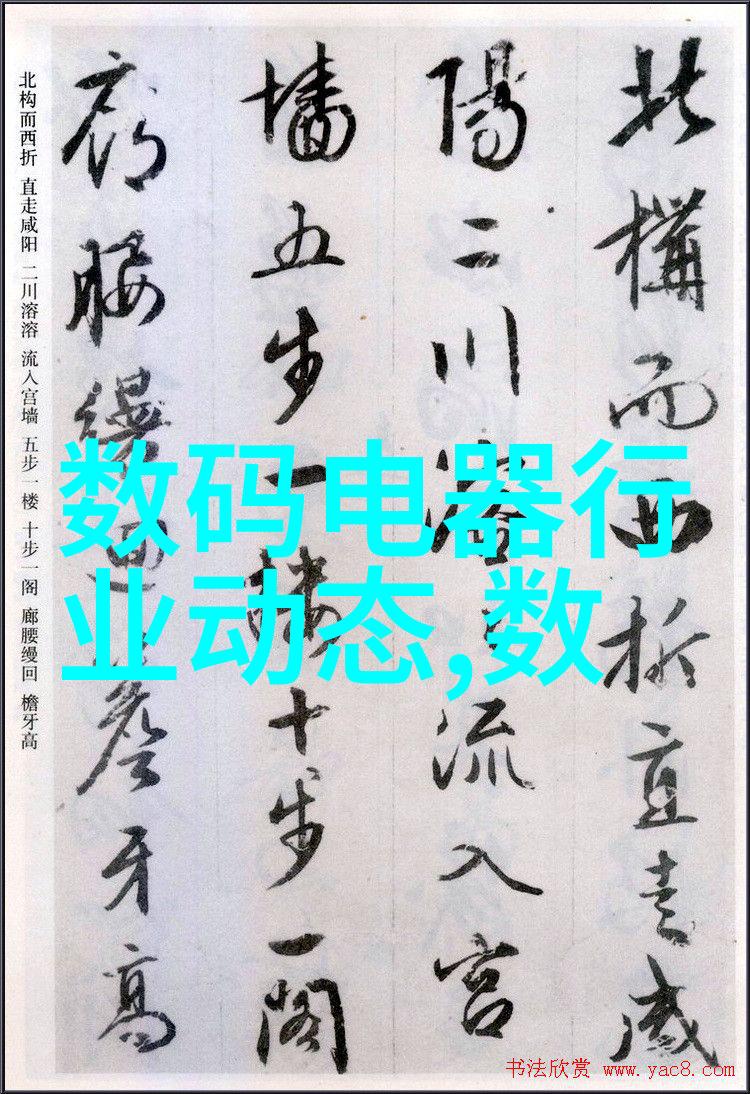 北構而西折直走咸
陽二川溶々流入宮
墻五步一樓十步一閣
廊腰縵迴簷牙高
北构而西折 直走咸阳 二川溶溶 流入宫墙 五步一楼 十步一阁 廊腰缦回 檐牙高
数码电器行
业动态,数
书法欣赏 www.yac8.com